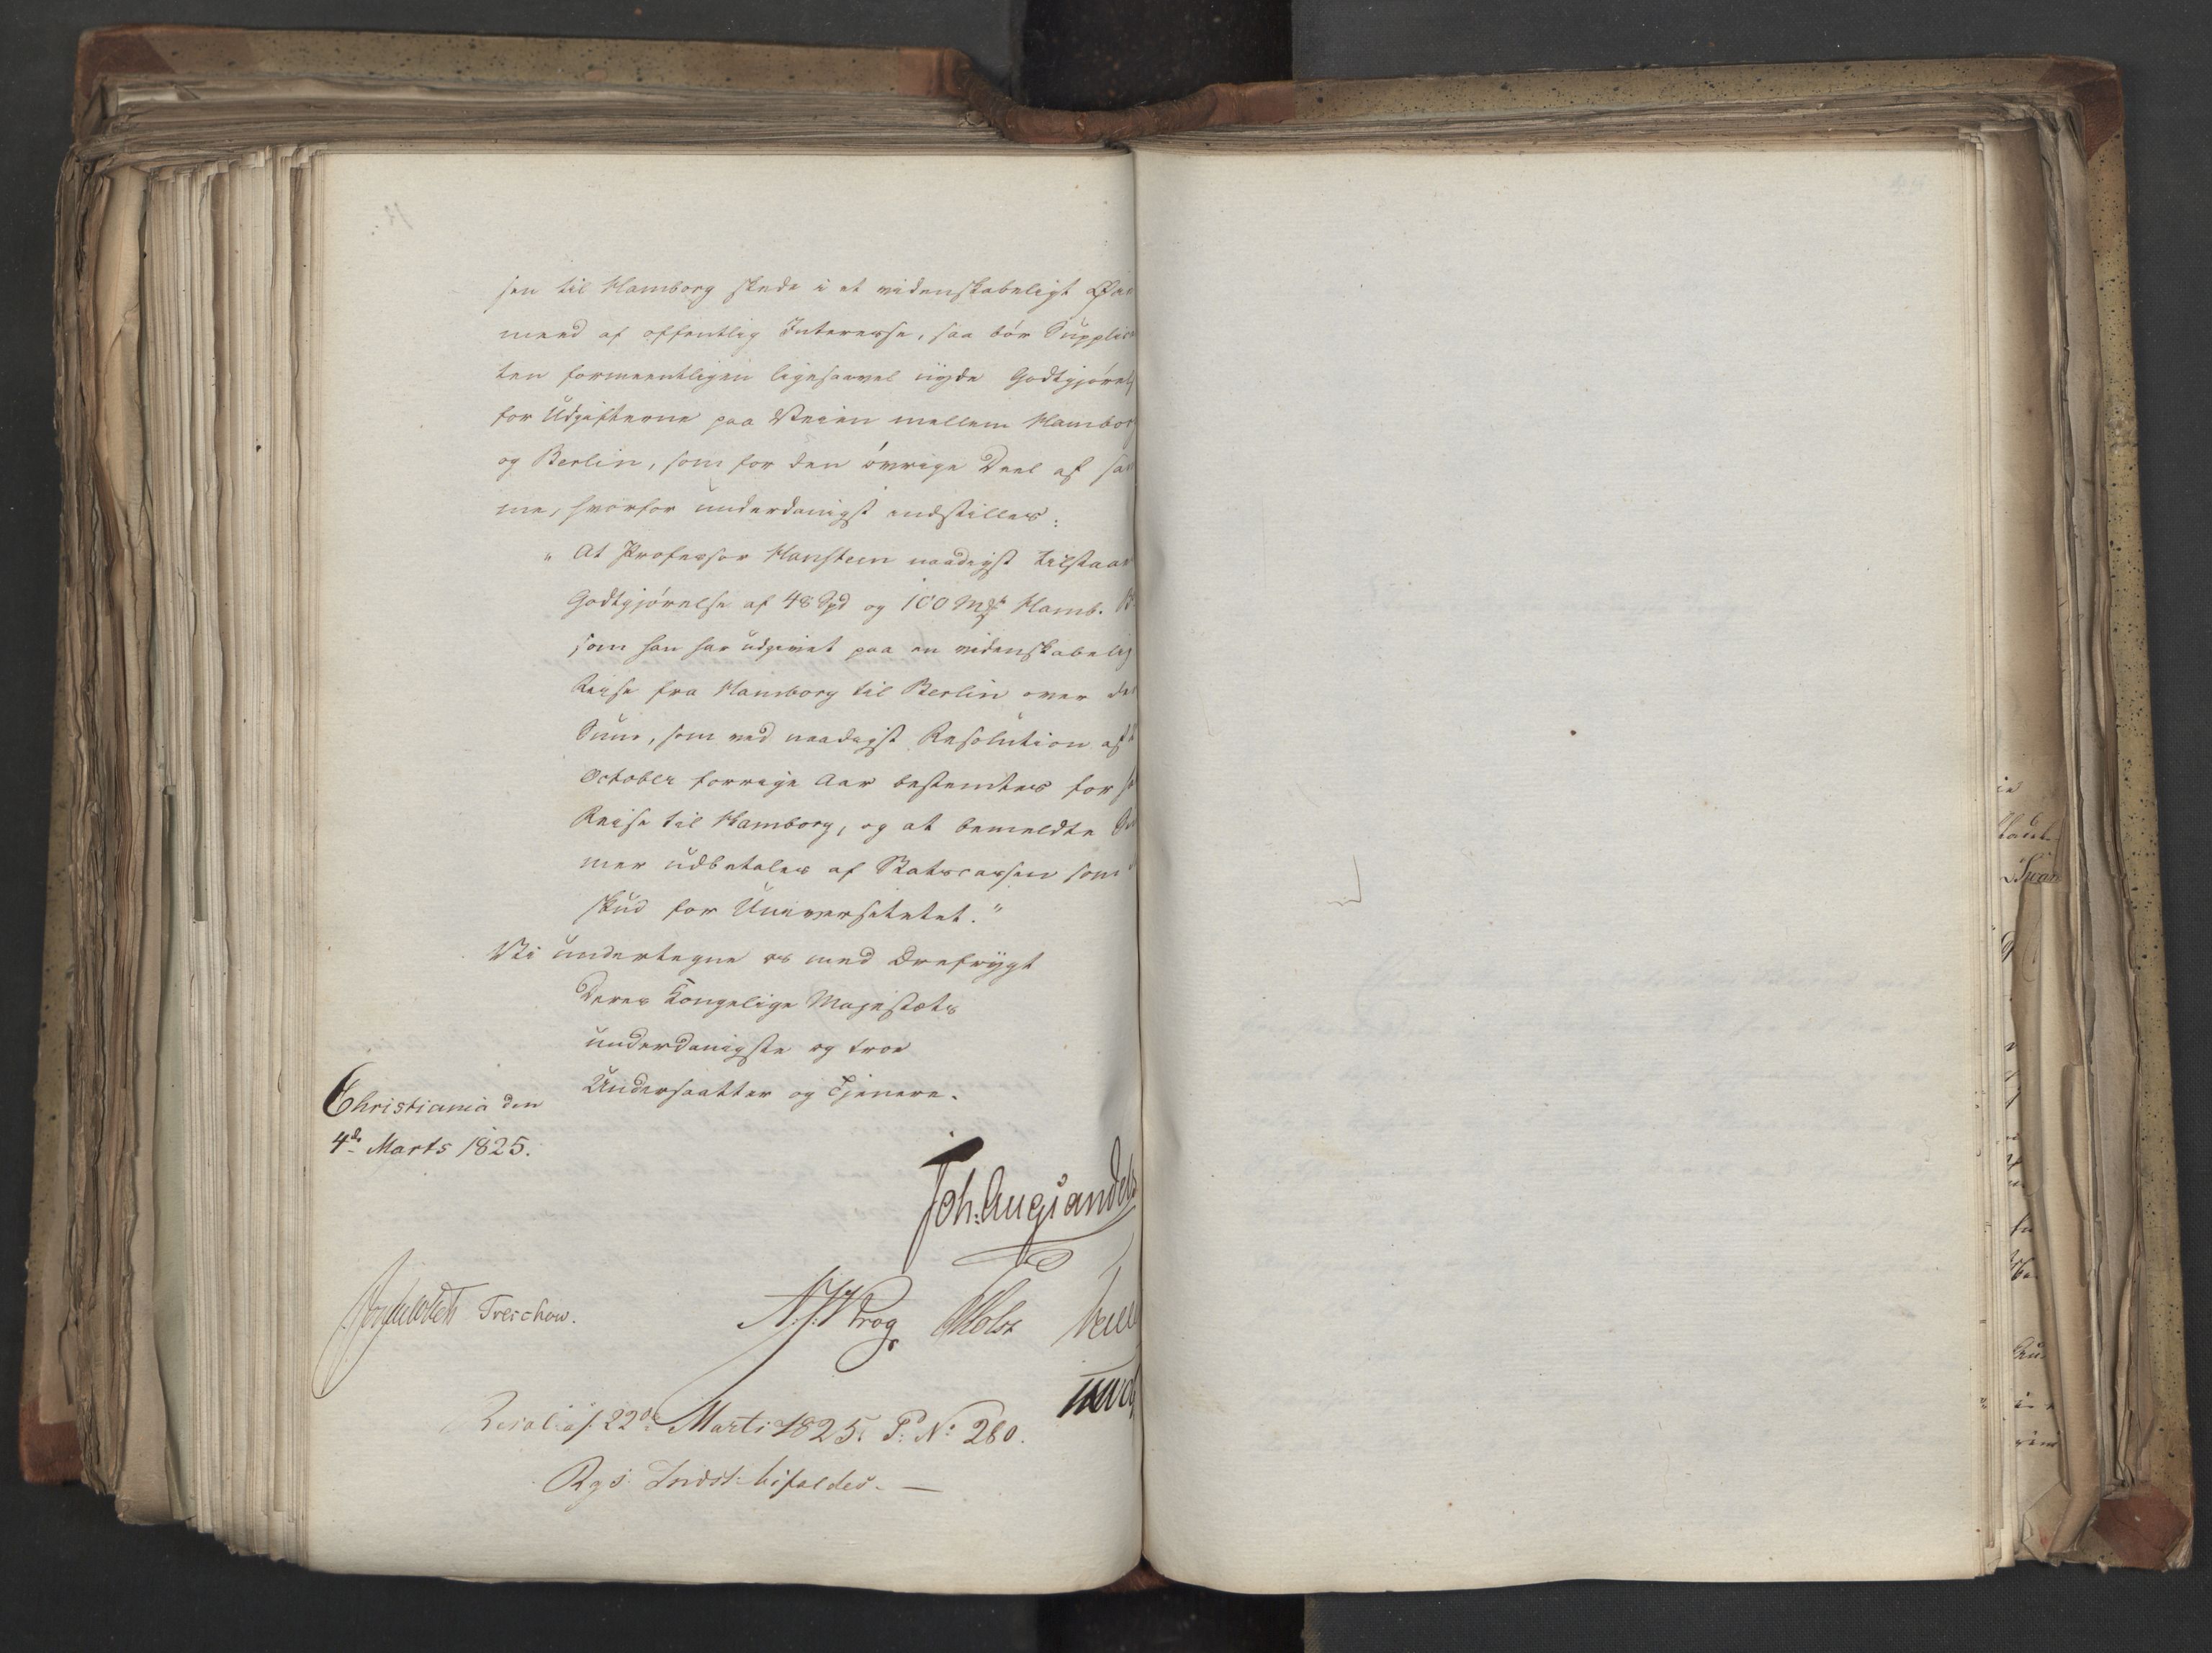 sen til Hamborg skede i et videnskabeligt Øie
meed af offentlig Interesse, saa bör Supplica
ten formeentligen ligesaavel nyde Godtgjörels
for Udgifterne paa Veien mellem Hamborg
og Berlin, som for den övrige Deel af sam
me, hvorfor underdanigst indstilles:
" At Professor Hansteen naadigst tilstaaes
Godtgjörelse af 48 Spd og 100 Mk Hamb. B
som han har udgivet paa en videnskabelig
Reise fra Hamborg til Berlin over den
Sum, som ved naadigst Resolution af
October forrige Aar bestemtes for
Reise til Hamborg, og at bemeldte Sum
mer udbetales af Statscassen som
skud for Universitetet."
Vi undertegne os med Ærefrygt
Deres Kongelige Majestæts
underdanigste og troe
Undersaatter og Tjenere.
Christiania den
4de Marts 1825.
Joh: Aug: Sandels
Treschow.
Krog Holst
22de Marti 1825. P: No: 280.
Rgs: Indst: bifaldes. —